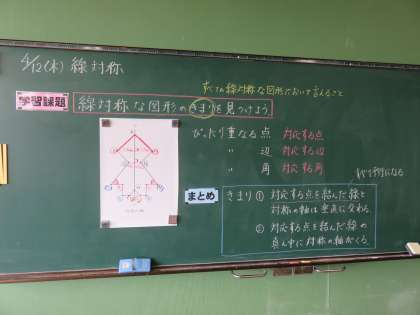 4/12(木) 線対称
すべての線対称な図形において言えること
学習課題
線対称な図形のきまりを見つけよう
ぴったり重なる点 対応する点
〃 辺 対応する辺
〃 角 対応する角
まとめ
きまり① 対応する点を結んだ線と
対称の軸は垂直に交わる
② 対応する点を結んだ線の
真ん中に対称の軸がくる